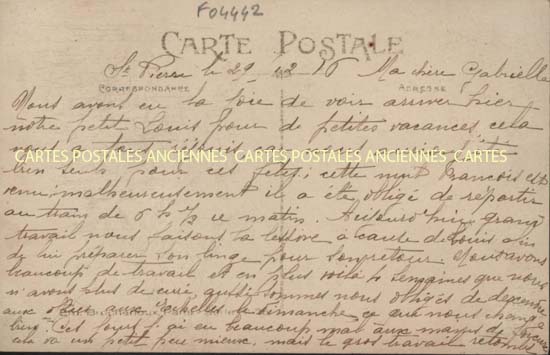 F04442
CARTE POSTALE
St Pierre le 29 12 16 Ma chère Gabrielle
CORRESPONDANCE ADRESSE
Nous avons eu la joie de voir arriver hier
notre petit Louis pour de petites vacances cela
nous a tout
CARTES POSTALES ANCIENNES CARTES POSTALES ANCIENNES CARTES POSTALES ANCIENNES
bien seuls pour ces fêtes; cette nuit François est
venu, malheureusement il a été obligé de répartir
au train de 6 h ½ ce matin. Aujourd'hui grand
travail nous faisons la lessive à cause de Louis afin
de lui préparer son linge pour son retour. Nous avons
beaucoup de travail et en plus voilà 4 semaines que nous
n'avons plus de curé, aussi sommes nous obligés de descendre
aux le dimanche ce qui nous change
Ces jours j'ai eu beaucoup mal aux mains
cela va un petit peu mieux, mais le gros travail